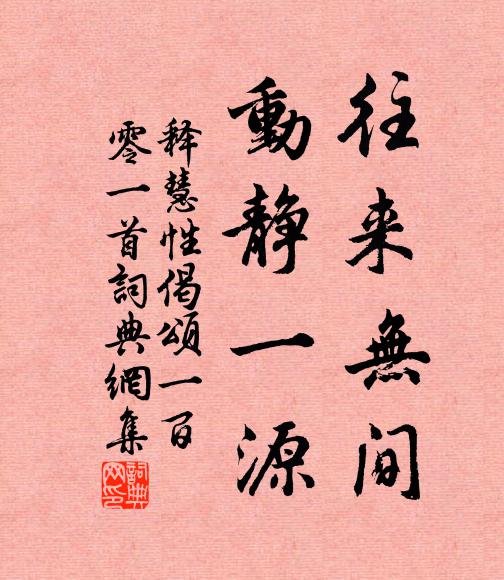 往来無间
動静一源
释慧性偈頌一百
零一首詞典網集
詞典网印